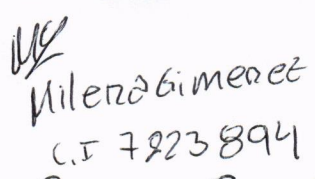 Milena Gimenez
C.I 7223894